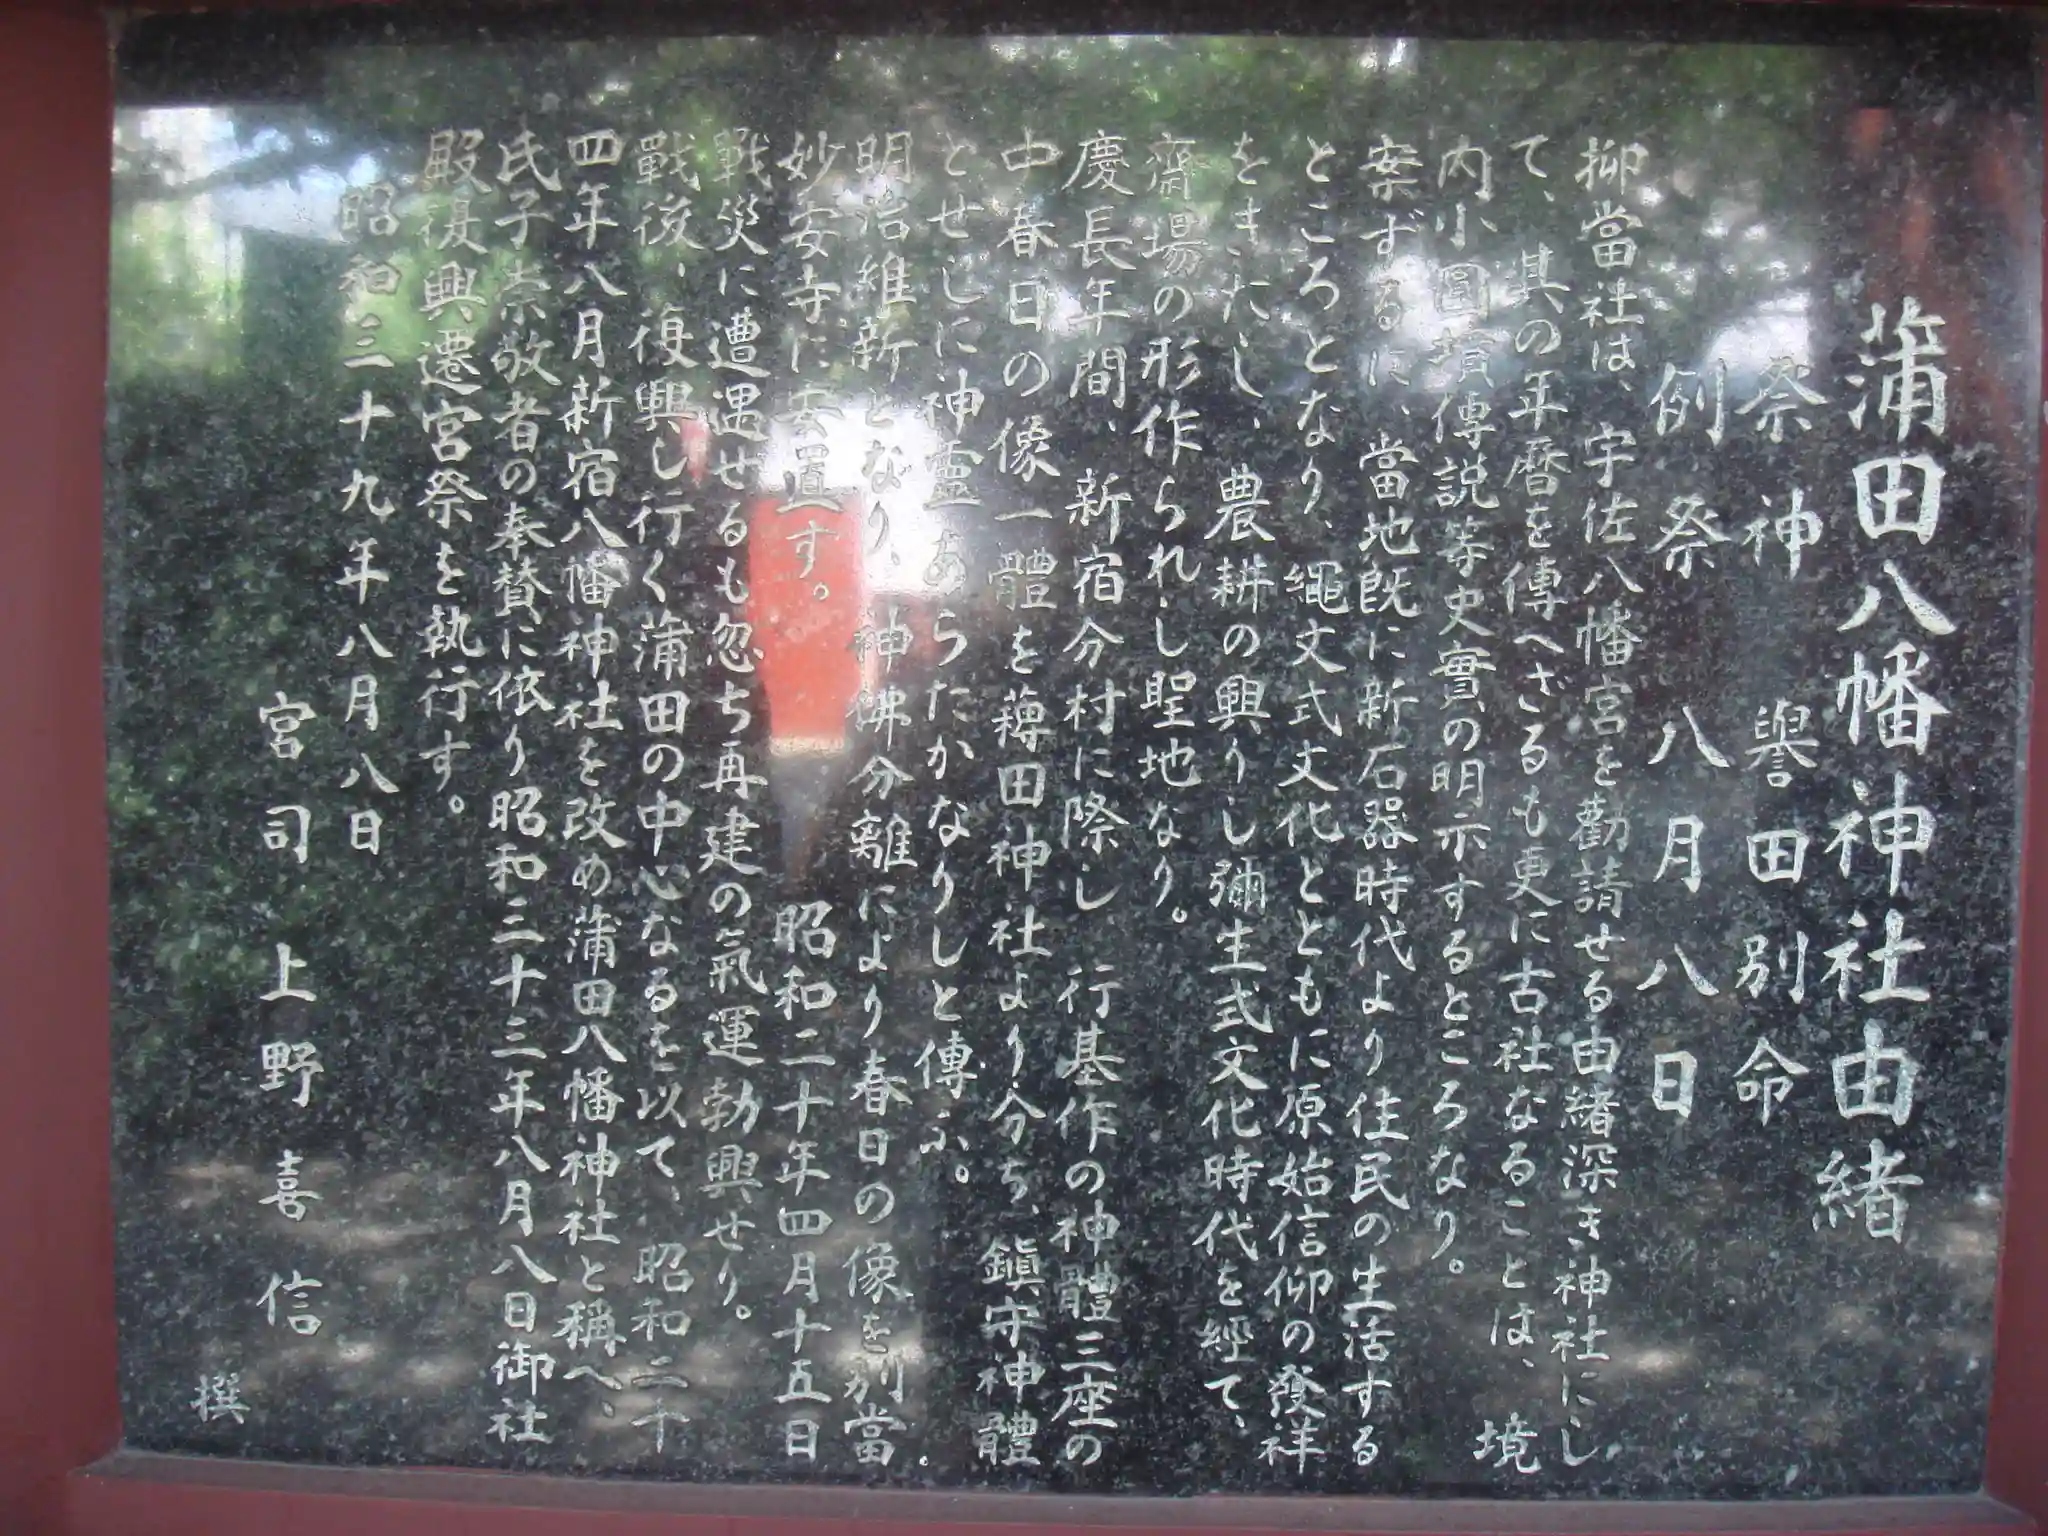 蒲田八幡神社由緒
祭神 譽田別命
例祭 八月八日
抑當社は、宇佐八幡宮を勸請せる由緒深き神社にし
て、其の年暦を傳へざるも更に古社なることは、境
内小圓墳傳説等史實の明示するところなり。
案ずるに、當地既に新石器時代より住民の生活する
ところとなり、繩文式文化とともに原始信仰の發祥
をきたし、農耕の興りし彌生式文化時代を經て、
齋場の形作られし聖地なり。
慶長年間、新宿分村に際し、行基作の神體三座の
中春日の像一體を薭田神社より分ち、鎭守神體
とせしに神靈あらたかなりしと傳ふ。
明治維新となり、神佛分離により春日の像を別當
妙安寺に安置す。 昭和二十年四月十五日
戰災に遭遇せるも忽ち再建の氣運勃興せり。
戰後、復興し行く蒲田の中心なるを以て、昭和二十
四年八月新宿八幡神社を改め蒲田八幡神社と稱へ、
氏子崇敬者の奉賛に依り昭和三十三年八月八日御社
殿復興遷宮祭を執行す。
昭和三十九年八月八日
宮司 上野喜信
撰